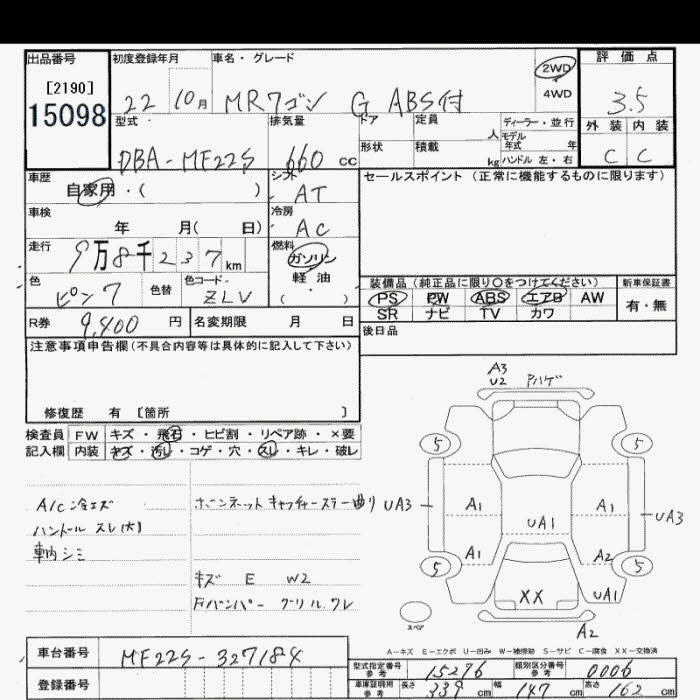 出品番号 初度登録年月 車名・グレード 評価点
[2190]
15098 22 10月 MRワゴン G ABS付 2WD 4WD 3.5
型式 排気量 ドア 定員 人 ディーラー・並行 外装 内装
DBA-MF22S 660 cc 形状 積載 kg モデル年式 年 ハンドル 左・右 C C
車歴 シフト セールスポイント (正常に機能するものに限ります)
自家用・( ) AT
車検 冷房
年 月( 日) AC
走行 燃料
9万8千237km ガソリン
軽油
( )
色 色替 色コード 装備品(純正品に限り〇をつけてください) 新車保証書
ピンク ZLV PS PW ABS エアB AW 有・無
SR ナビ TV カワ
R券 9,400円 名変期限 月 日 後日品
注意事項申告欄(不具合内容等は具体的に記入して下さい)
修復歴 有 [箇所 ]
検査員 FW キズ・飛石・ヒビ割・リペア跡・×要
記入欄 内装 キズ・汚レ・コゲ・穴・スレ・キレ・破レ
A/C冷エズ ボンネットキャッチャーステー曲り
ハンドル スレ(大)
車内シミ
キズ E W2
Fバンパー グリル ワレ
A3
U2 Pハゲ
5 5
UA3 A1 A1 UA3
UA1
A1 A2
5 5
XX UA1
スペア A2
A-キズ E-エクボ U-凹み W-補修跡 S-サビ C-腐食 XX-交換済
車台番号 MF22S-327184
登録番号
型式指定番号 参考 15276 類別区分番号 参考 0006
車庫証明用 参考 長さ 339cm 幅 147cm 高さ 162cm